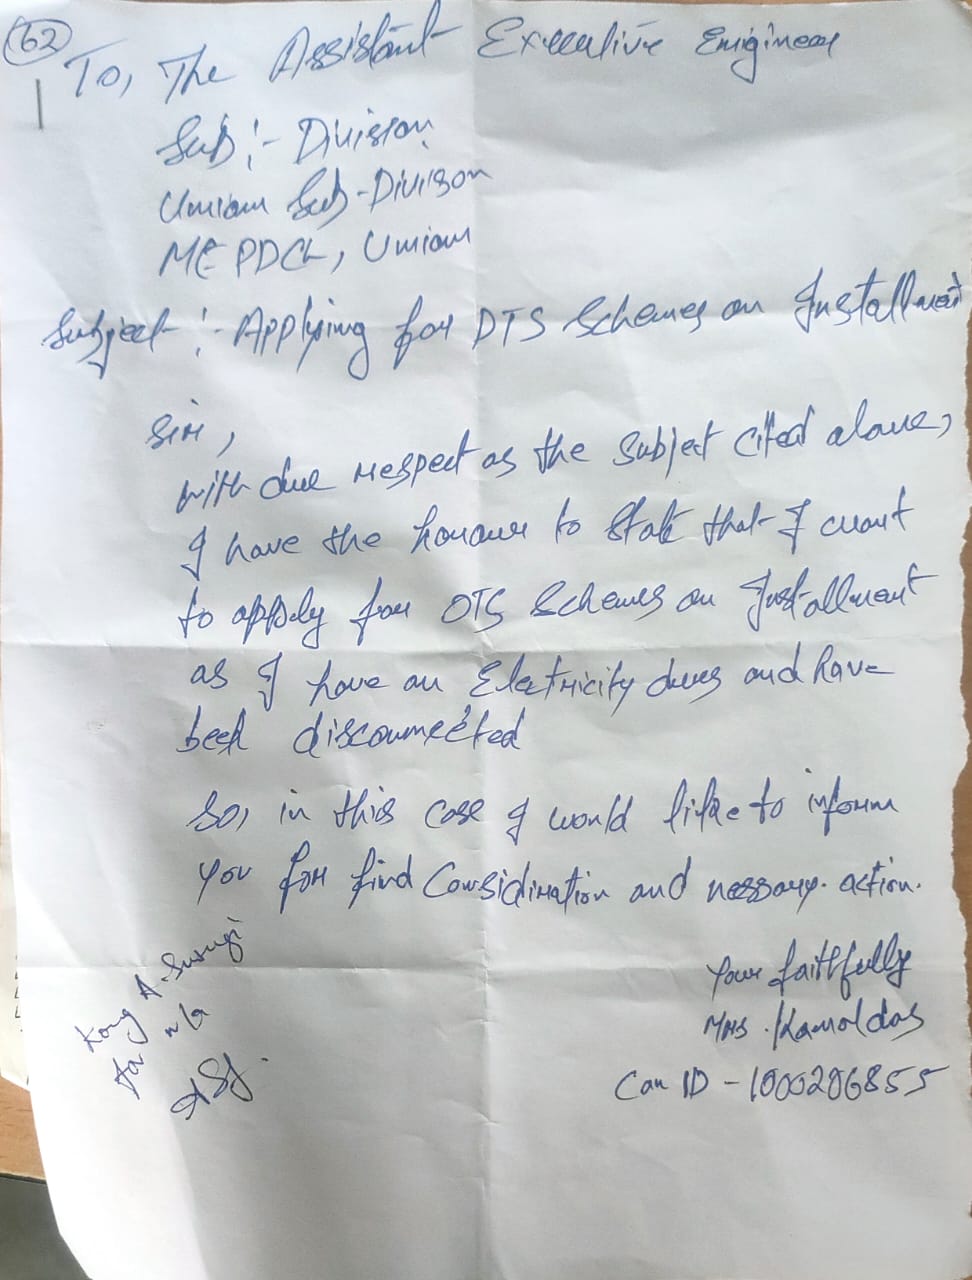 62
To, The Assistant Executive Engineer
Sub:- Division
Umiam Sub-Divison
MEPDCL, Umiam
Subject:- Applying for OTS Schemes on Installment
Sir,
with due respect as the subject cited above,
I have the honour to state that I want
to apply for OTS Schemes on Installment
as I have an Electricity dues and have
been disconnected
So, in this case I would like to inform
you for kind Considiration and nessary action.
Your faithfully
Mrs. Kamol das
Con ID - 1000206855
Kong A.
for n/a